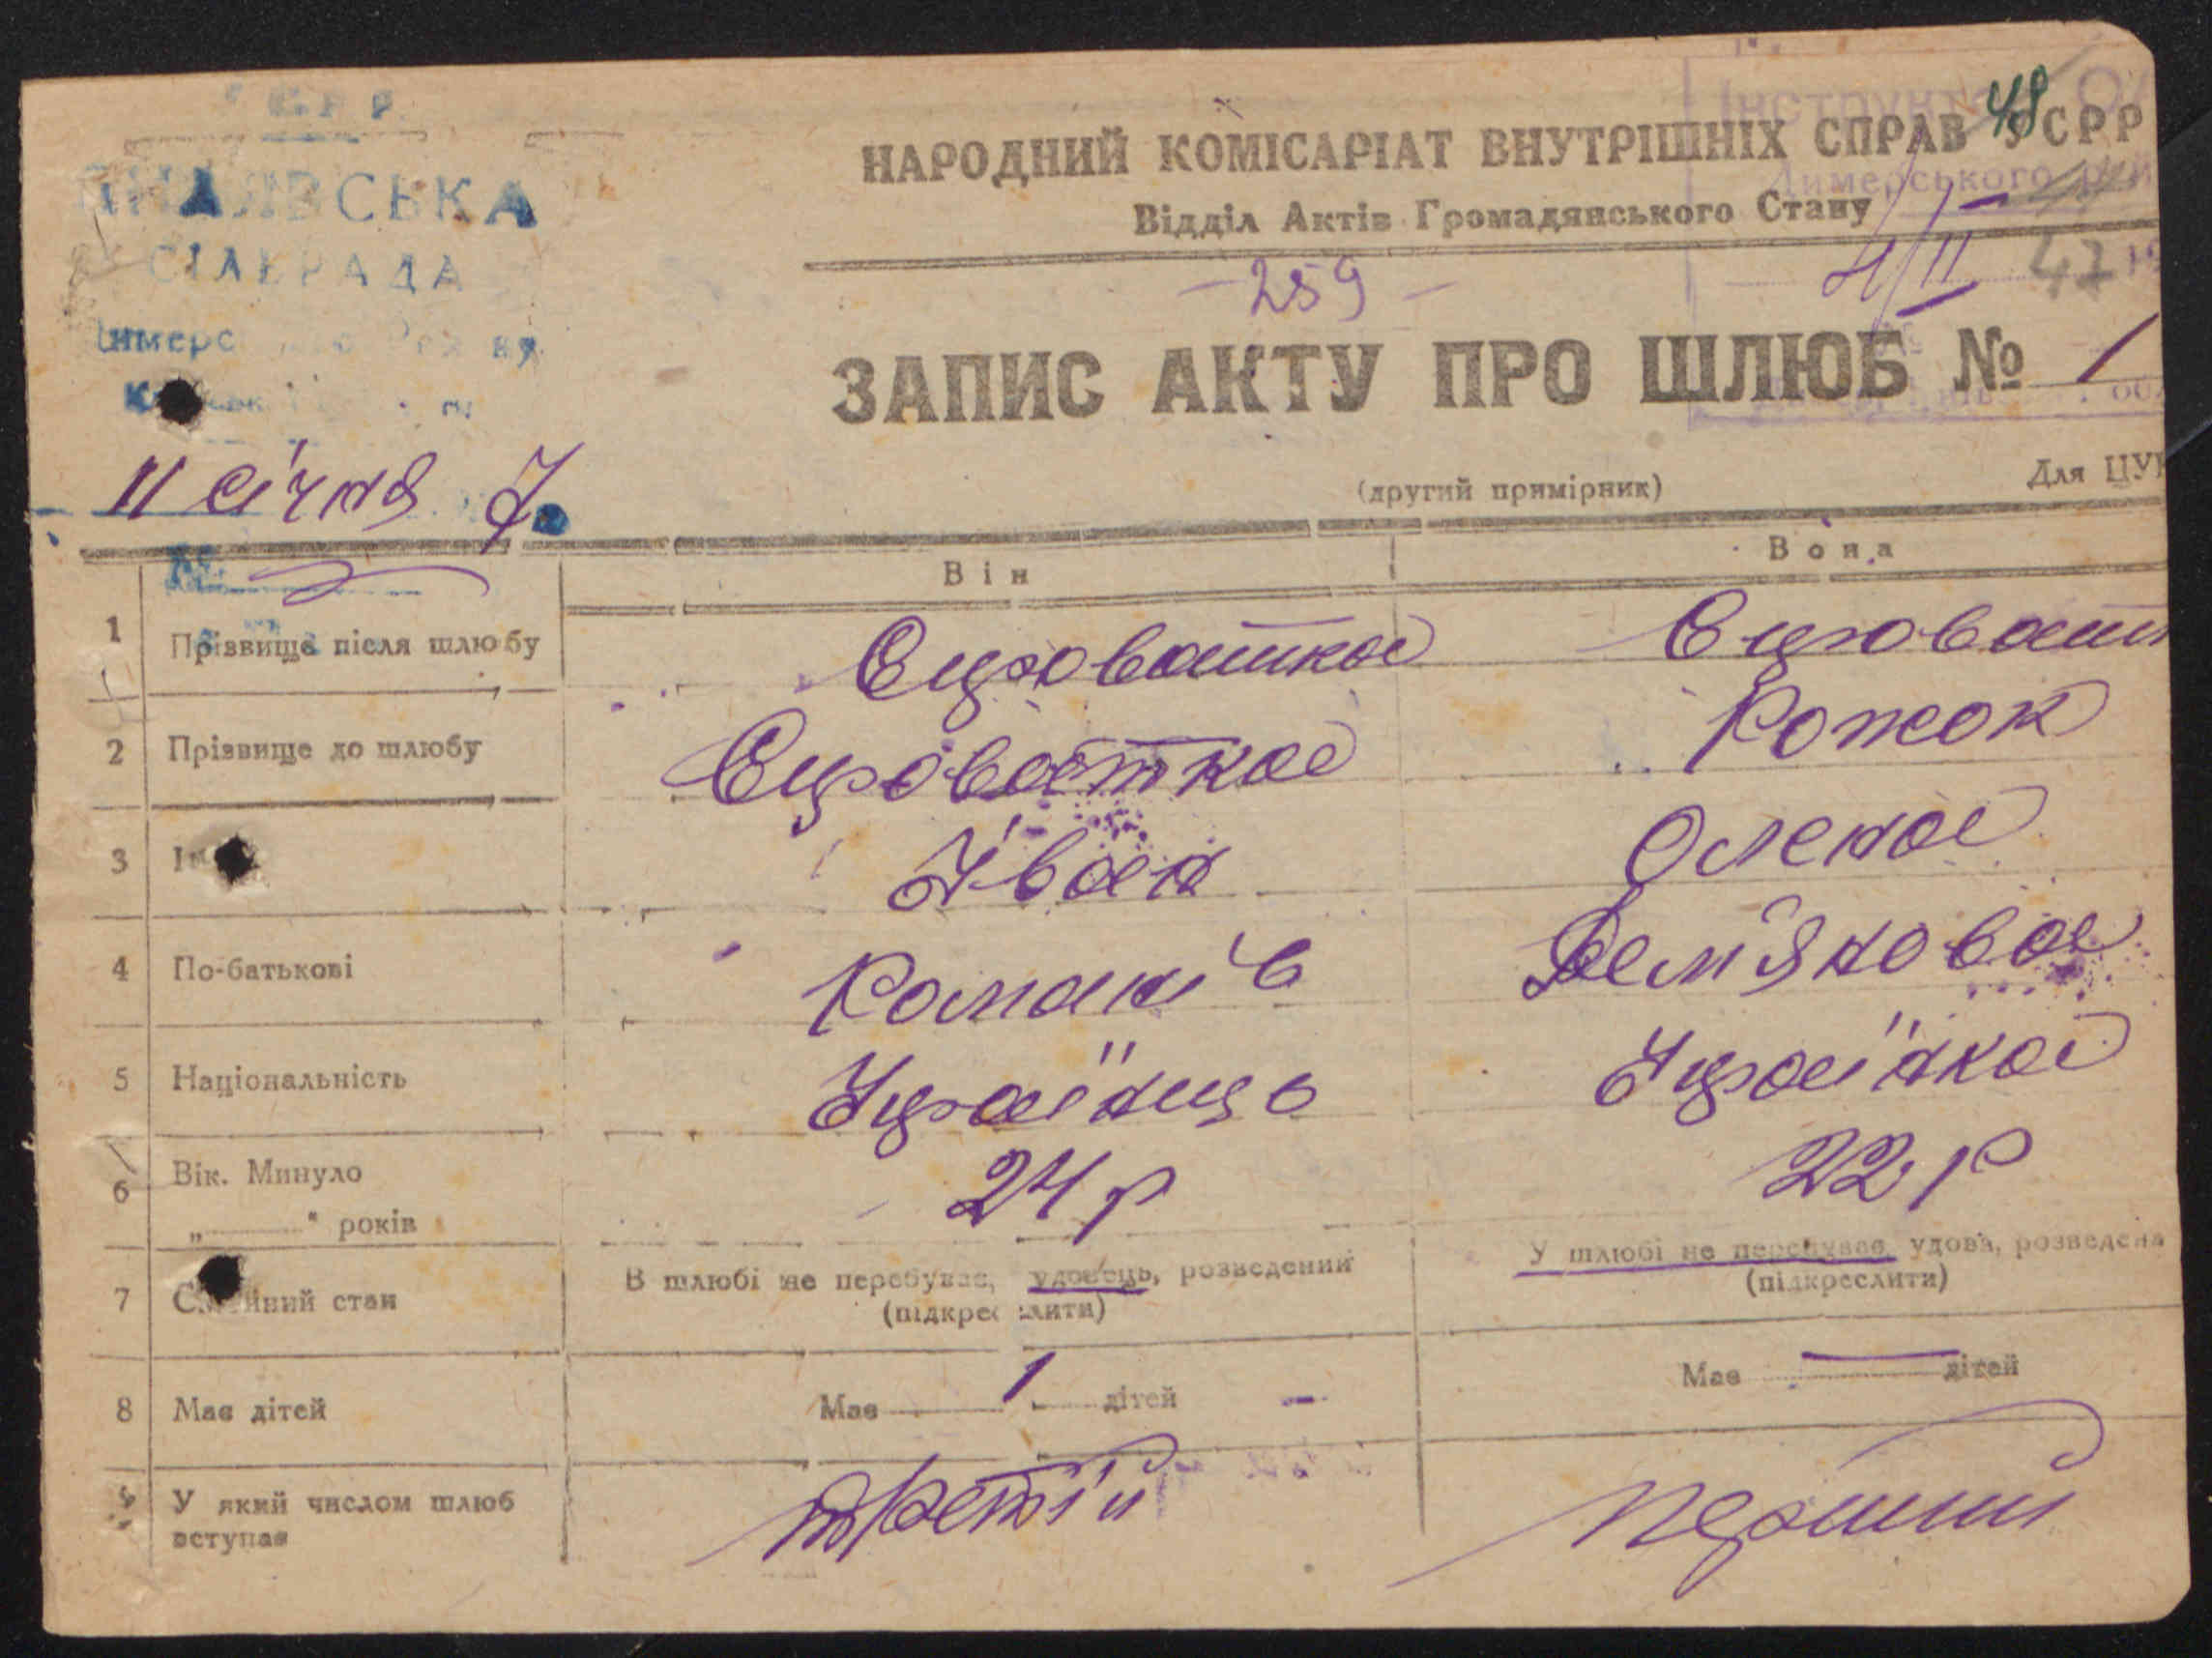 СІЛЬРАДА
НАРОДНИЙ КОМІСАРІАТ ВНУТРІШНІХ СПРАВ УСРР
48
Відділ Актів Громадянського Стану
- 259 -
4/II
47
ЗАПИС АКТУ ПРО ШЛЮБ № 1
11 січня 7
(другий примірник)
Для
№
Він
Вона
1 Прізвище після шлюбу
Сироватка
2 Прізвище до шлюбу
Сироватка
Рожок
3
Іван
Олена
4 По-батькові
Романів
Дем'янова
5 Національність
Українець
Українка
6 Вік. Минуло
24 р
22 р
„ " років
7 Сімейний стан
В шлюбі не перебуває, удовець, розведений
(підкреслити)
У шлюбі не перебуває, удова, розведена
(підкреслити)
8 Має дітей
Має 1 дітей
Має — дітей
У який числом шлюб
вступає
третій
перший